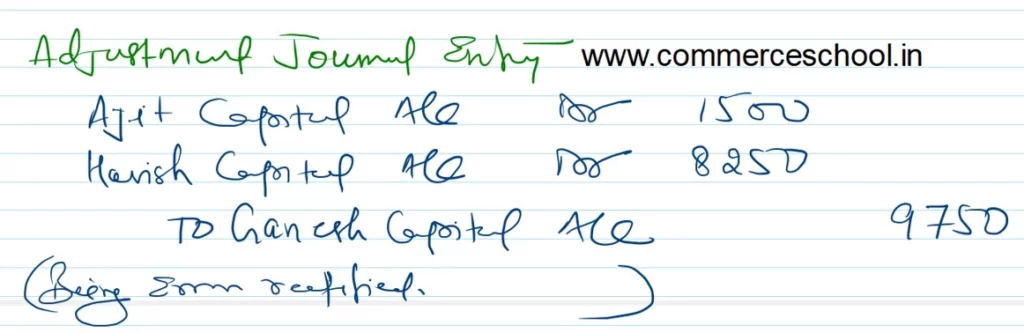 Adjustment Journal Entry www.commerceschool.in
Ajit Capital A/c Dr 1500
Harish Capital A/c Dr 8250
To Ganesh Capital A/c 9750
(Being Error rectified. )